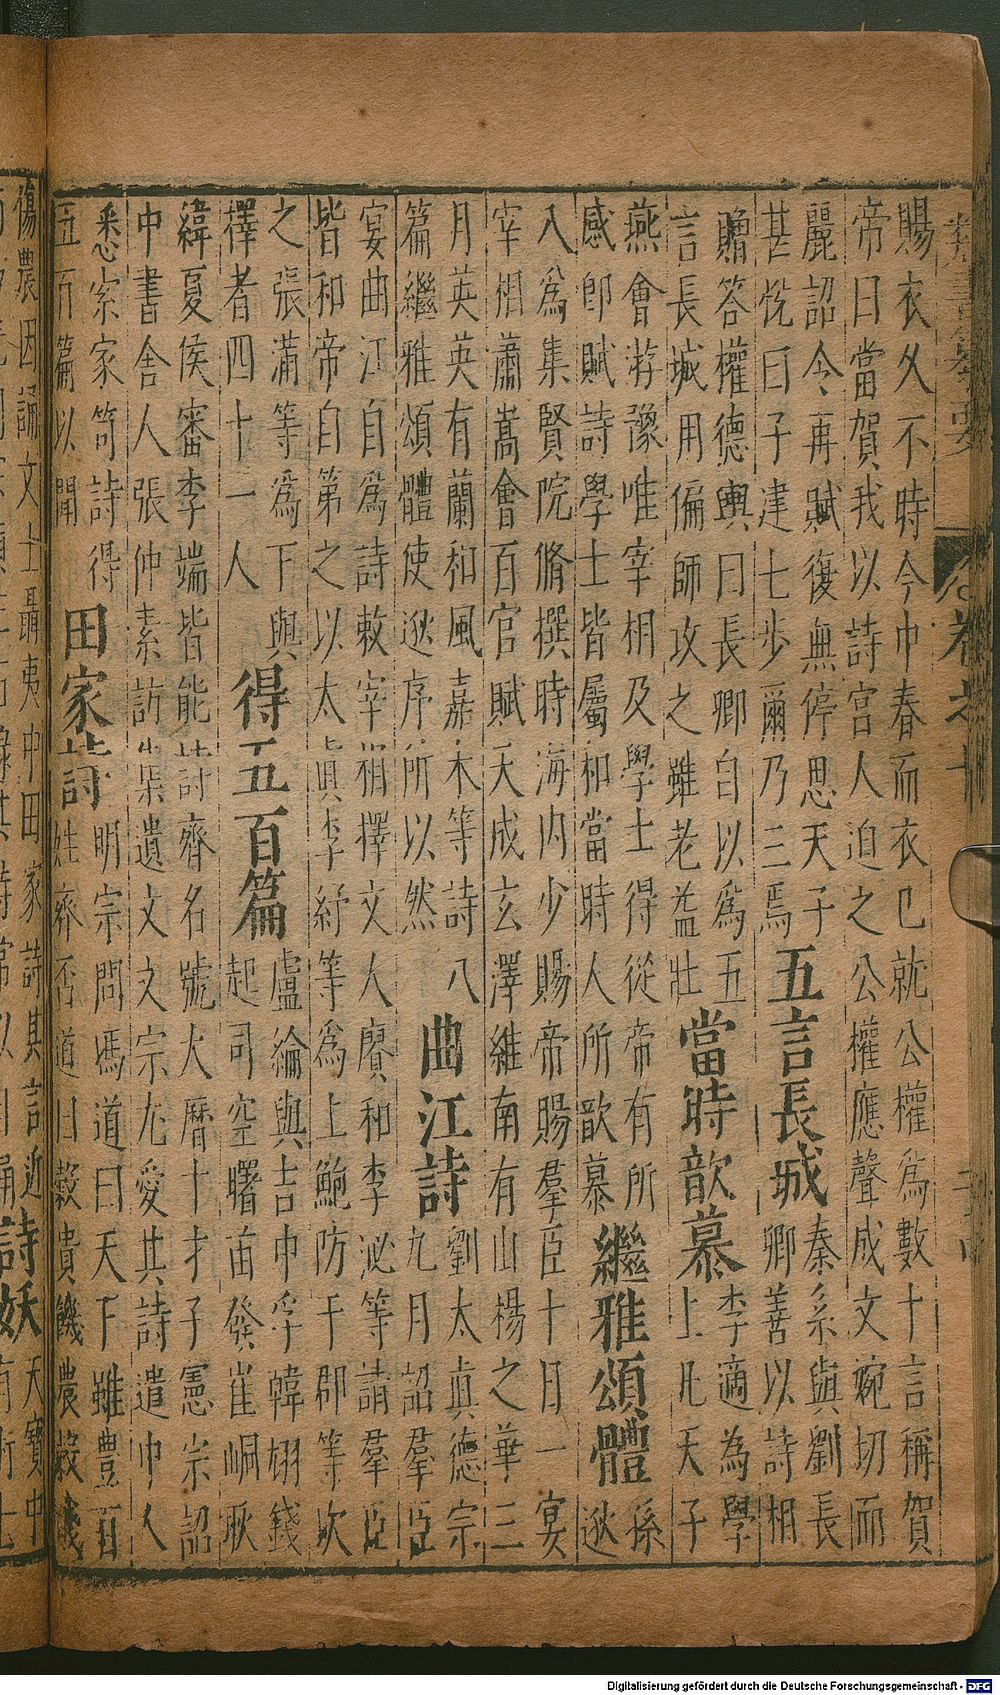 類書纂要
賜衣久不時今中春而衣已就公權爲數十言稱賀
帝曰當賀我以詩宮人迫之公權應聲成文婉切而
麗詔令再賦復無停思天子
甚悅曰子建七步爾乃三焉
五言長城
秦系與劉長
卿善以詩相
贈答權德輿曰長卿自以爲五
言長城用偏師攻之雖老益壯
當時歆慕
李適為學
上凡天子
燕會游豫唯宰相及學士得從帝有所
感卽賦詩學士皆屬和當時人所歆慕
繼雅頌體
孫
逖
入爲集賢院脩撰時海內少賜帝賜羣臣十日一宴
宰相蕭嵩會百官賦天成玄澤維南有山楊之華三
月英英有蘭和風嘉木等詩八
篇繼雅頌體使逖序所以然
曲江詩
劉太眞德宗
九月詔羣臣
宴曲江自爲詩敕宰相擇文人賡和李泌等請羣臣
皆和帝自第之以太眞李紓等爲上鮑防于郡等次
之張滿等爲下與
擇者四十一人
得五百篇
盧綸與吉中孚韓翃錢
起司空曙苗發崔峒耿
緯夏侯審李端皆能詩齊名號大曆十才子憲宗詔
中書舍人張仲素訪集遺文文宗尤愛其詩遣中人
悉索家笥詩得
五百篇以聞
田家詩
明宗問馮道曰天下雖豊百
姓齊否道曰穀貴饑農穀賤
傷農因誦文士聶夷中田家詩其言近
詩妖
天寶中
Digitalisierung gefördert durch die Deutsche Forschungsgemeinschaft - DFG